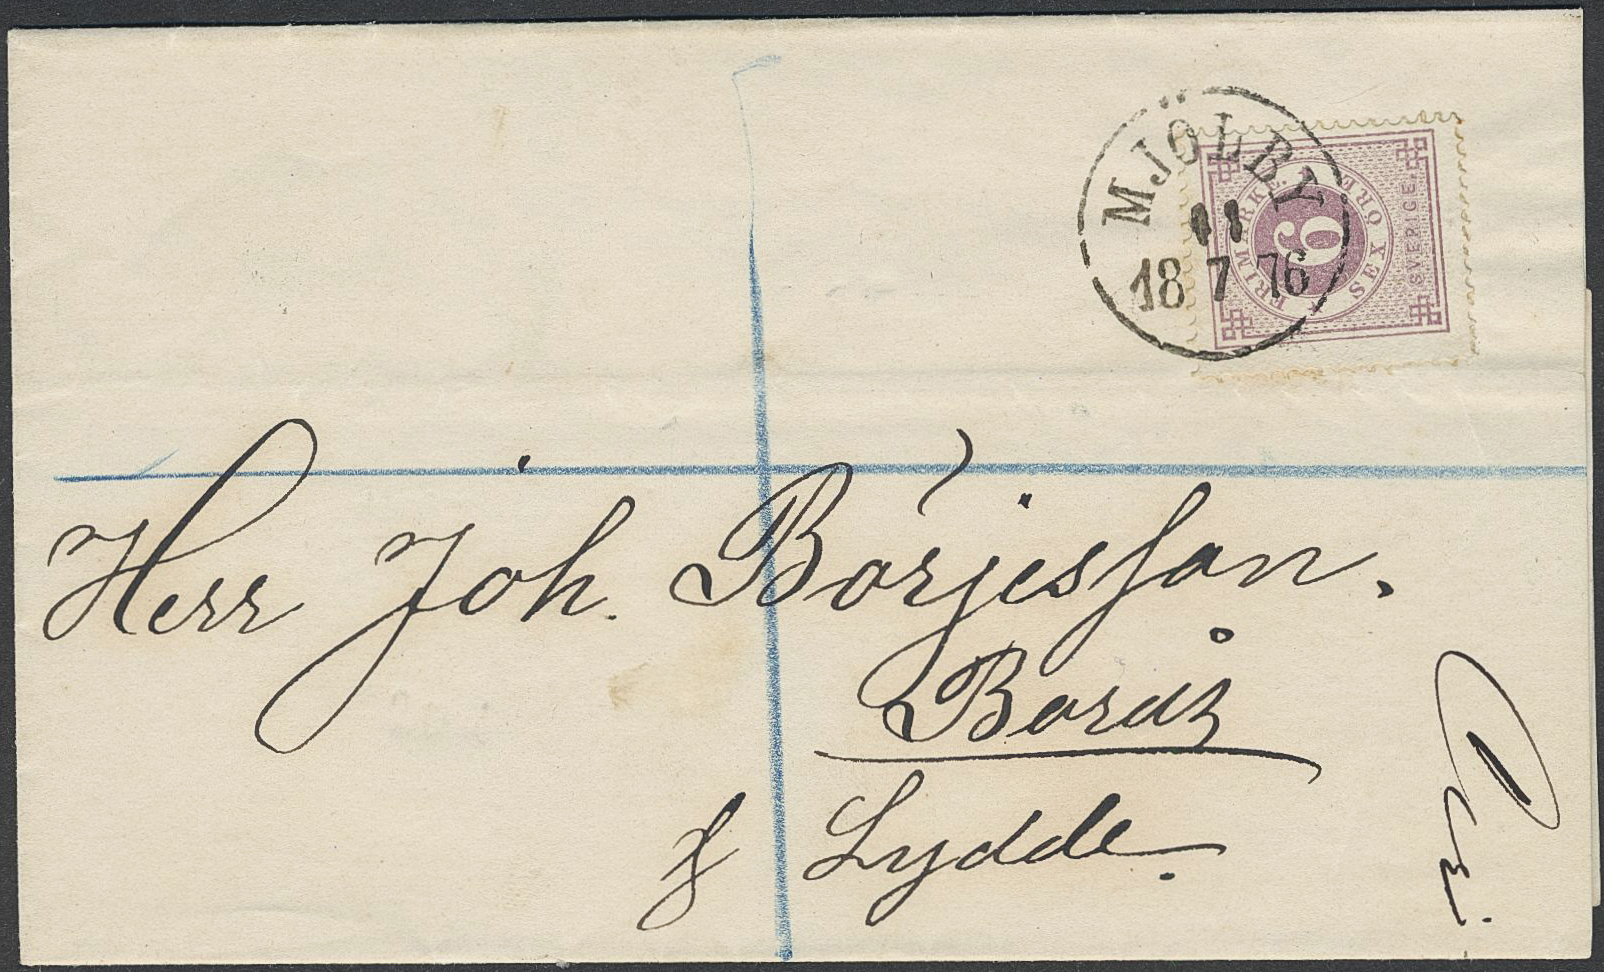 MJÖLBY
11
18 7 76
FRIMÄRKE.
SEX ÖRE
6
SVERIGE.
Herr Joh. Börjesson.
Borås
f Lydde.